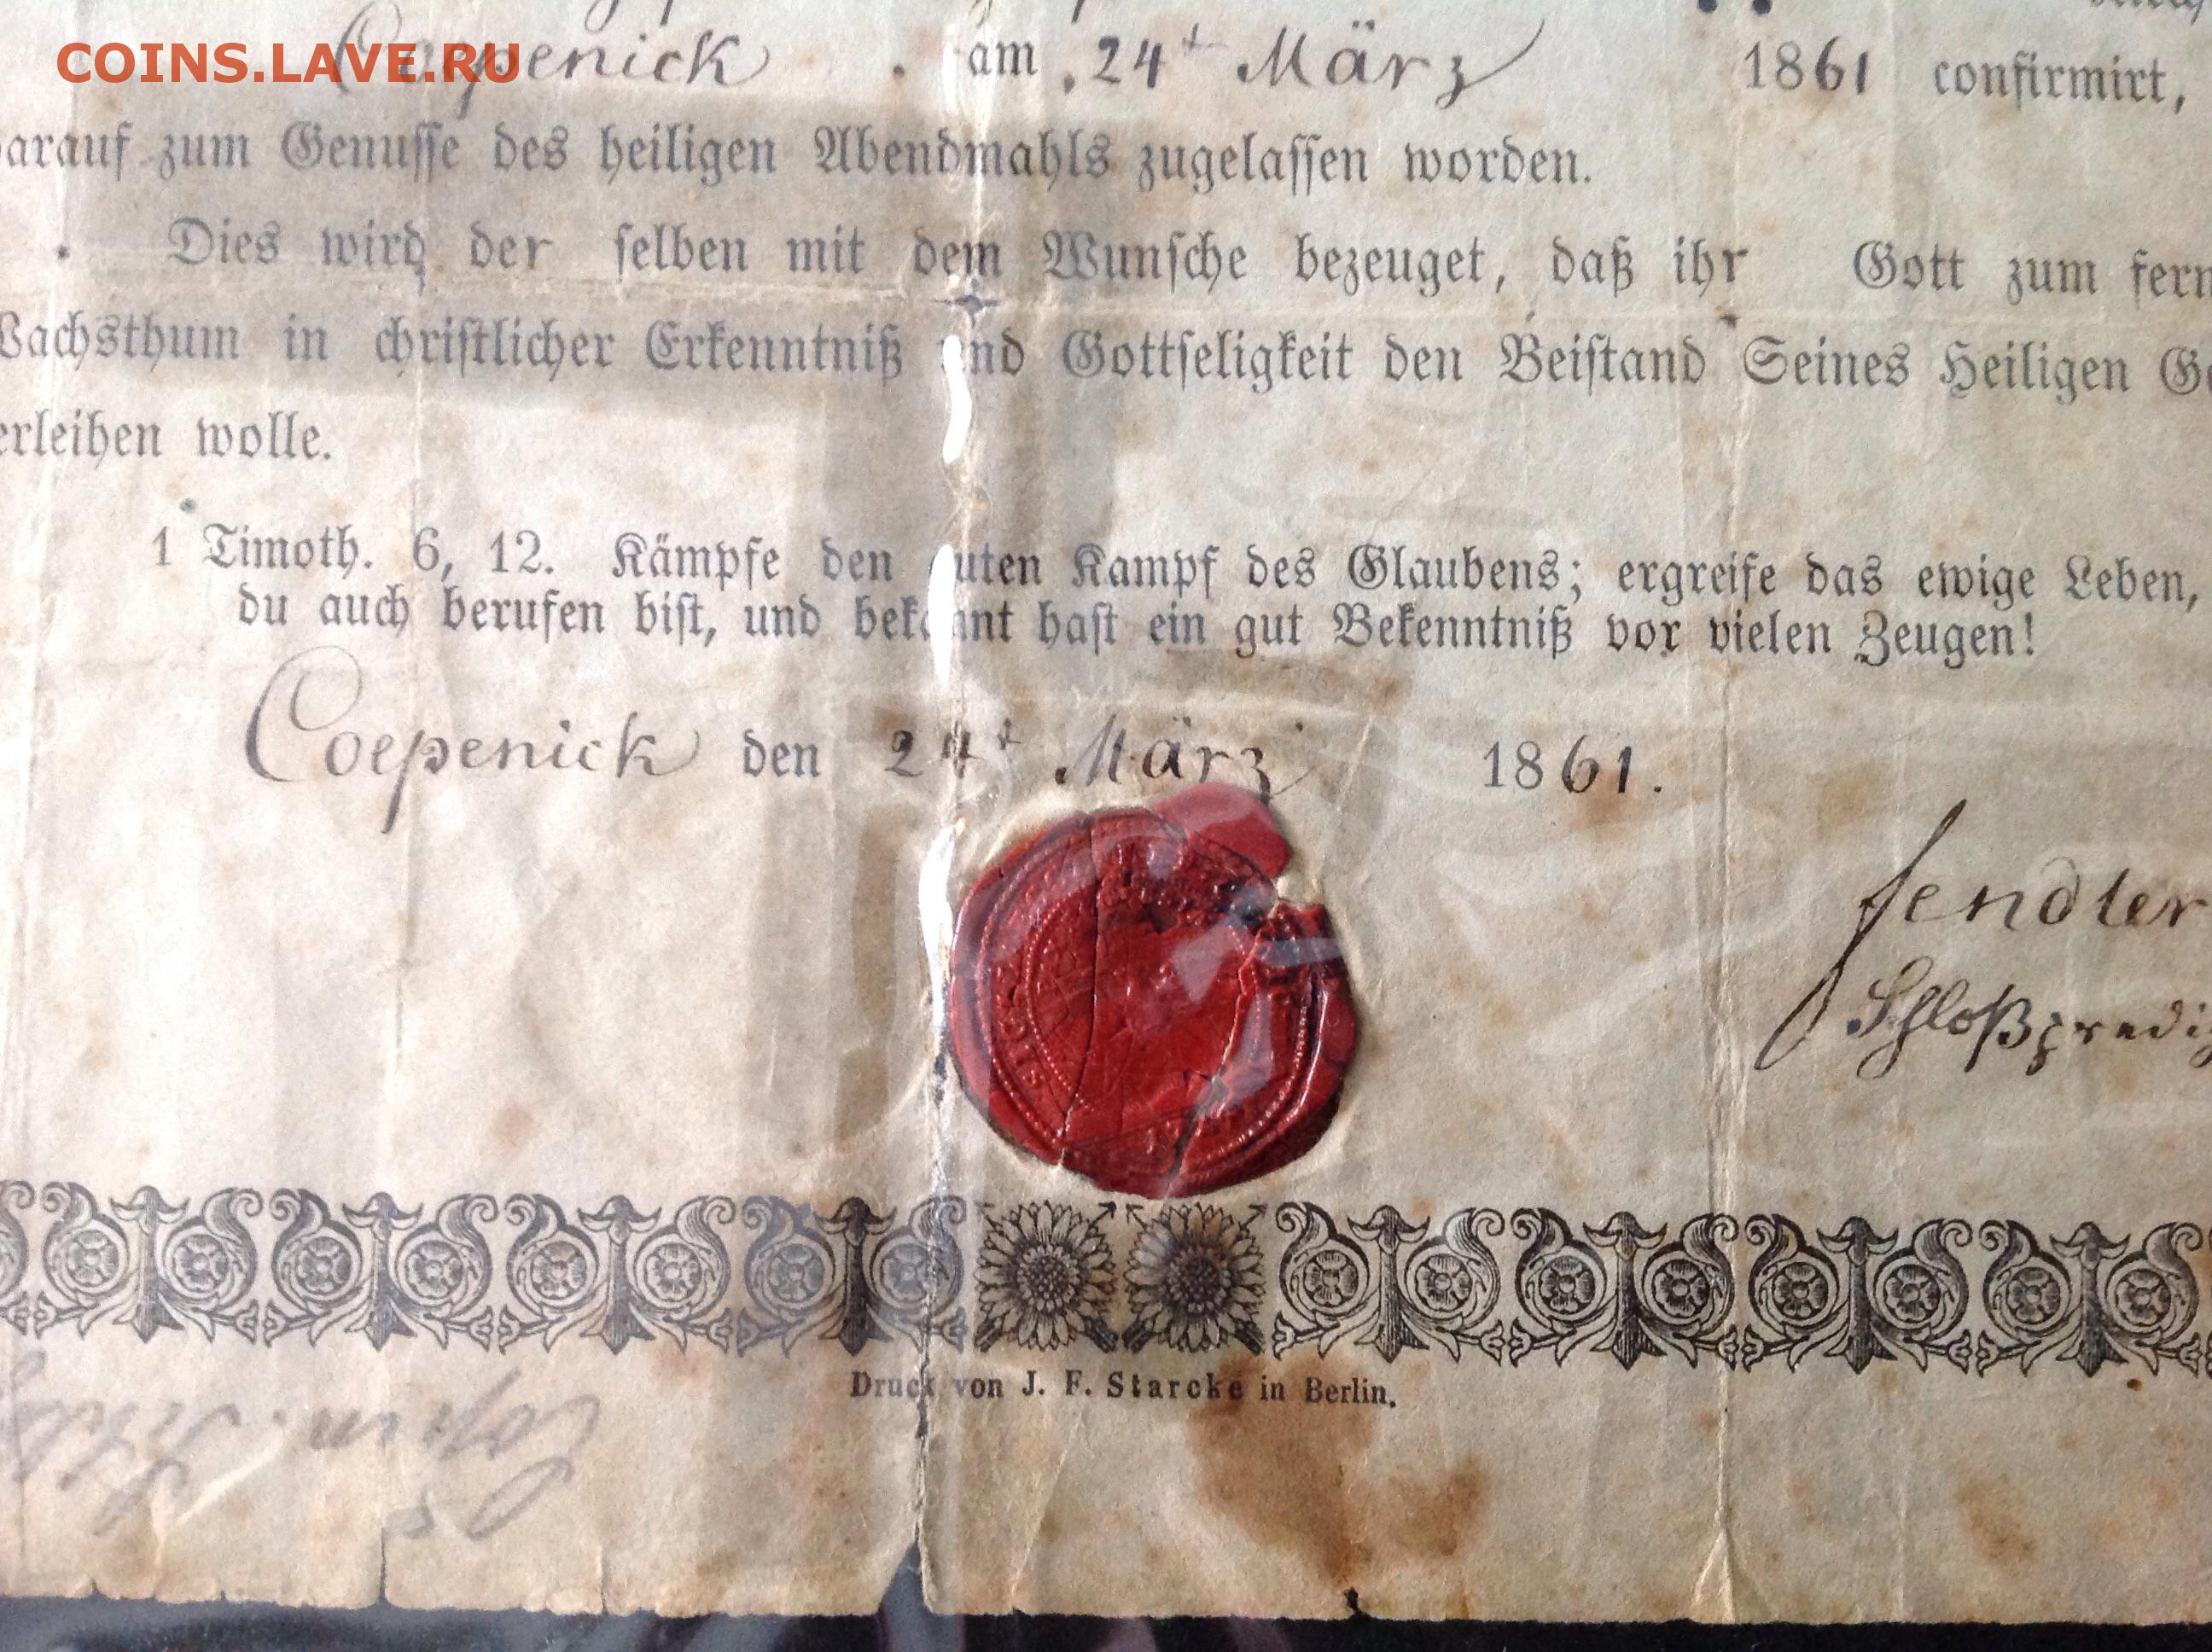 COINS.LAVE.RU
Coepenick am 24t März 1861 confirmirt,
arauf zum Genusse des heiligen Abendmahls zugelassen worden.
Dies wird der selben mit dem Wunsche bezeuget, daß ihr Gott zum fern
Wachsthum in christlicher Erkenntniß und Gottseligkeit den Beistand Seines Heiligen Ge
erleihen wolle.
1 Timoth. 6, 12. Kämpfe den guten Kampf des Glaubens; ergreife das ewige Leben,
du auch berufen bist, und bekannt hast ein gut Bekenntniß vor vielen Zeugen!
Coepenick den 24t März 1861.
Sendler
Schloßpredig
Druck von J. F. Starcke in Berlin.